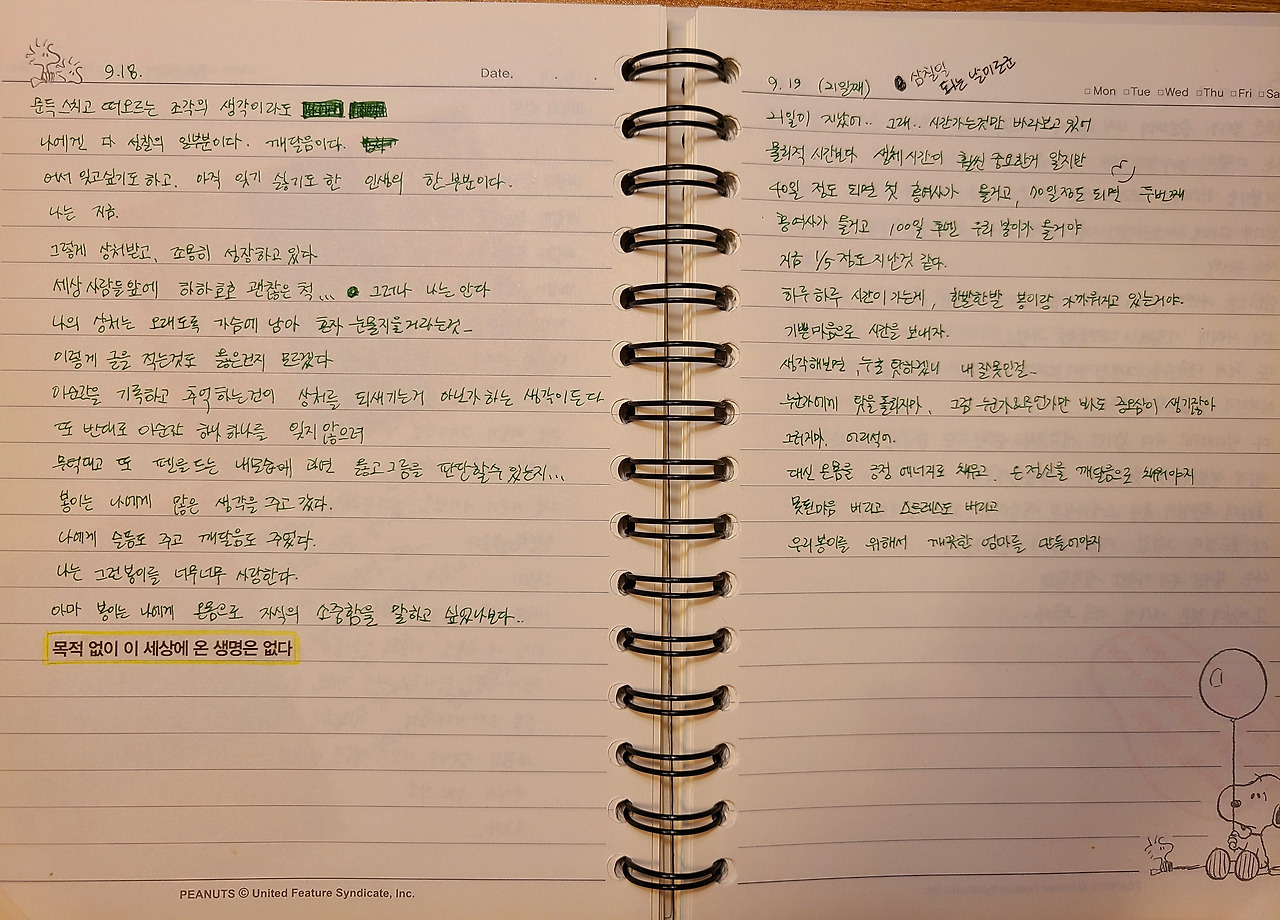 9.18.
Date.
문득 스치고 떠오르는 조각의 생각이라도
나에겐 다 성찰의 일부분이다. 깨달음이다.
어서 잊고싶기도하고, 아직 잊기 싫기도한 인생의 한부분이다.
나는 지금.
그렇게 상처받고, 조용히 성장하고있다
세상 사람들앞에 하하호호 괜찮은 척... 그러나 나는 안다
나의 상처는 오래도록 가슴에 남아 혼자 눈물지을거라는것_
이렇게 글을 적는것도 옳은건지 모르겠다
이순간을 기록하고 추억하는건이 상처를 되새기는거 아닌가하는 생각이든다
또 반대로 이순간 하나하나를 잊지않으려
무턱대고 또 펜을드는 내모습에 과연 옳고그름을 판단할수있는지...
봉이는 나에게 많은 생각을 주고 갔다.
나에게 슬픔도 주고 깨달음도 주었다.
나는 그런봉이를 너무너무 사랑한다.
아마 봉이는 나에게 온몸으로 자식의 소중함을 말하고 싶었나보다..
목적 없이 이 세상에 온 생명은 없다
PEANUTS © United Feature Syndicate, Inc.
9.19 (21일째) 삼칠일 되는 날이로군
Mon Tue Wed Thu Fri Sa
21일이 지났어.. 그래.. 시간가는것만 바라보고있어
물리적 시간보다 생체시간이 훨씬 중요한거 알지만
40일 정도 되면 첫 홍여사가 올거고, 70일정도 되면 두번째
홍여사가 올거고 100일 후엔 우리 봉이가 올거야
지금 1/5 정도지난것 같다.
하루하루 시간이가는게, 한발한발 봉이랑 가까워지고 있는거야.
기쁜마음으로 시간을 보내자.
생각해보면, 누굴 탓하겠니 내잘못인걸_
누군가에게 탓을돌리지마, 그럼 누군가 봐도 증오심이 생기잖아
그러지마, 어리석어.
대신 온몸을 긍정 에너지로 채우고, 온정신을 깨달음으로 채워야지
못된마음 버리고 스트레스도 버리고
우리봉이를 위해서 깨끗한 엄마를 만들어야지